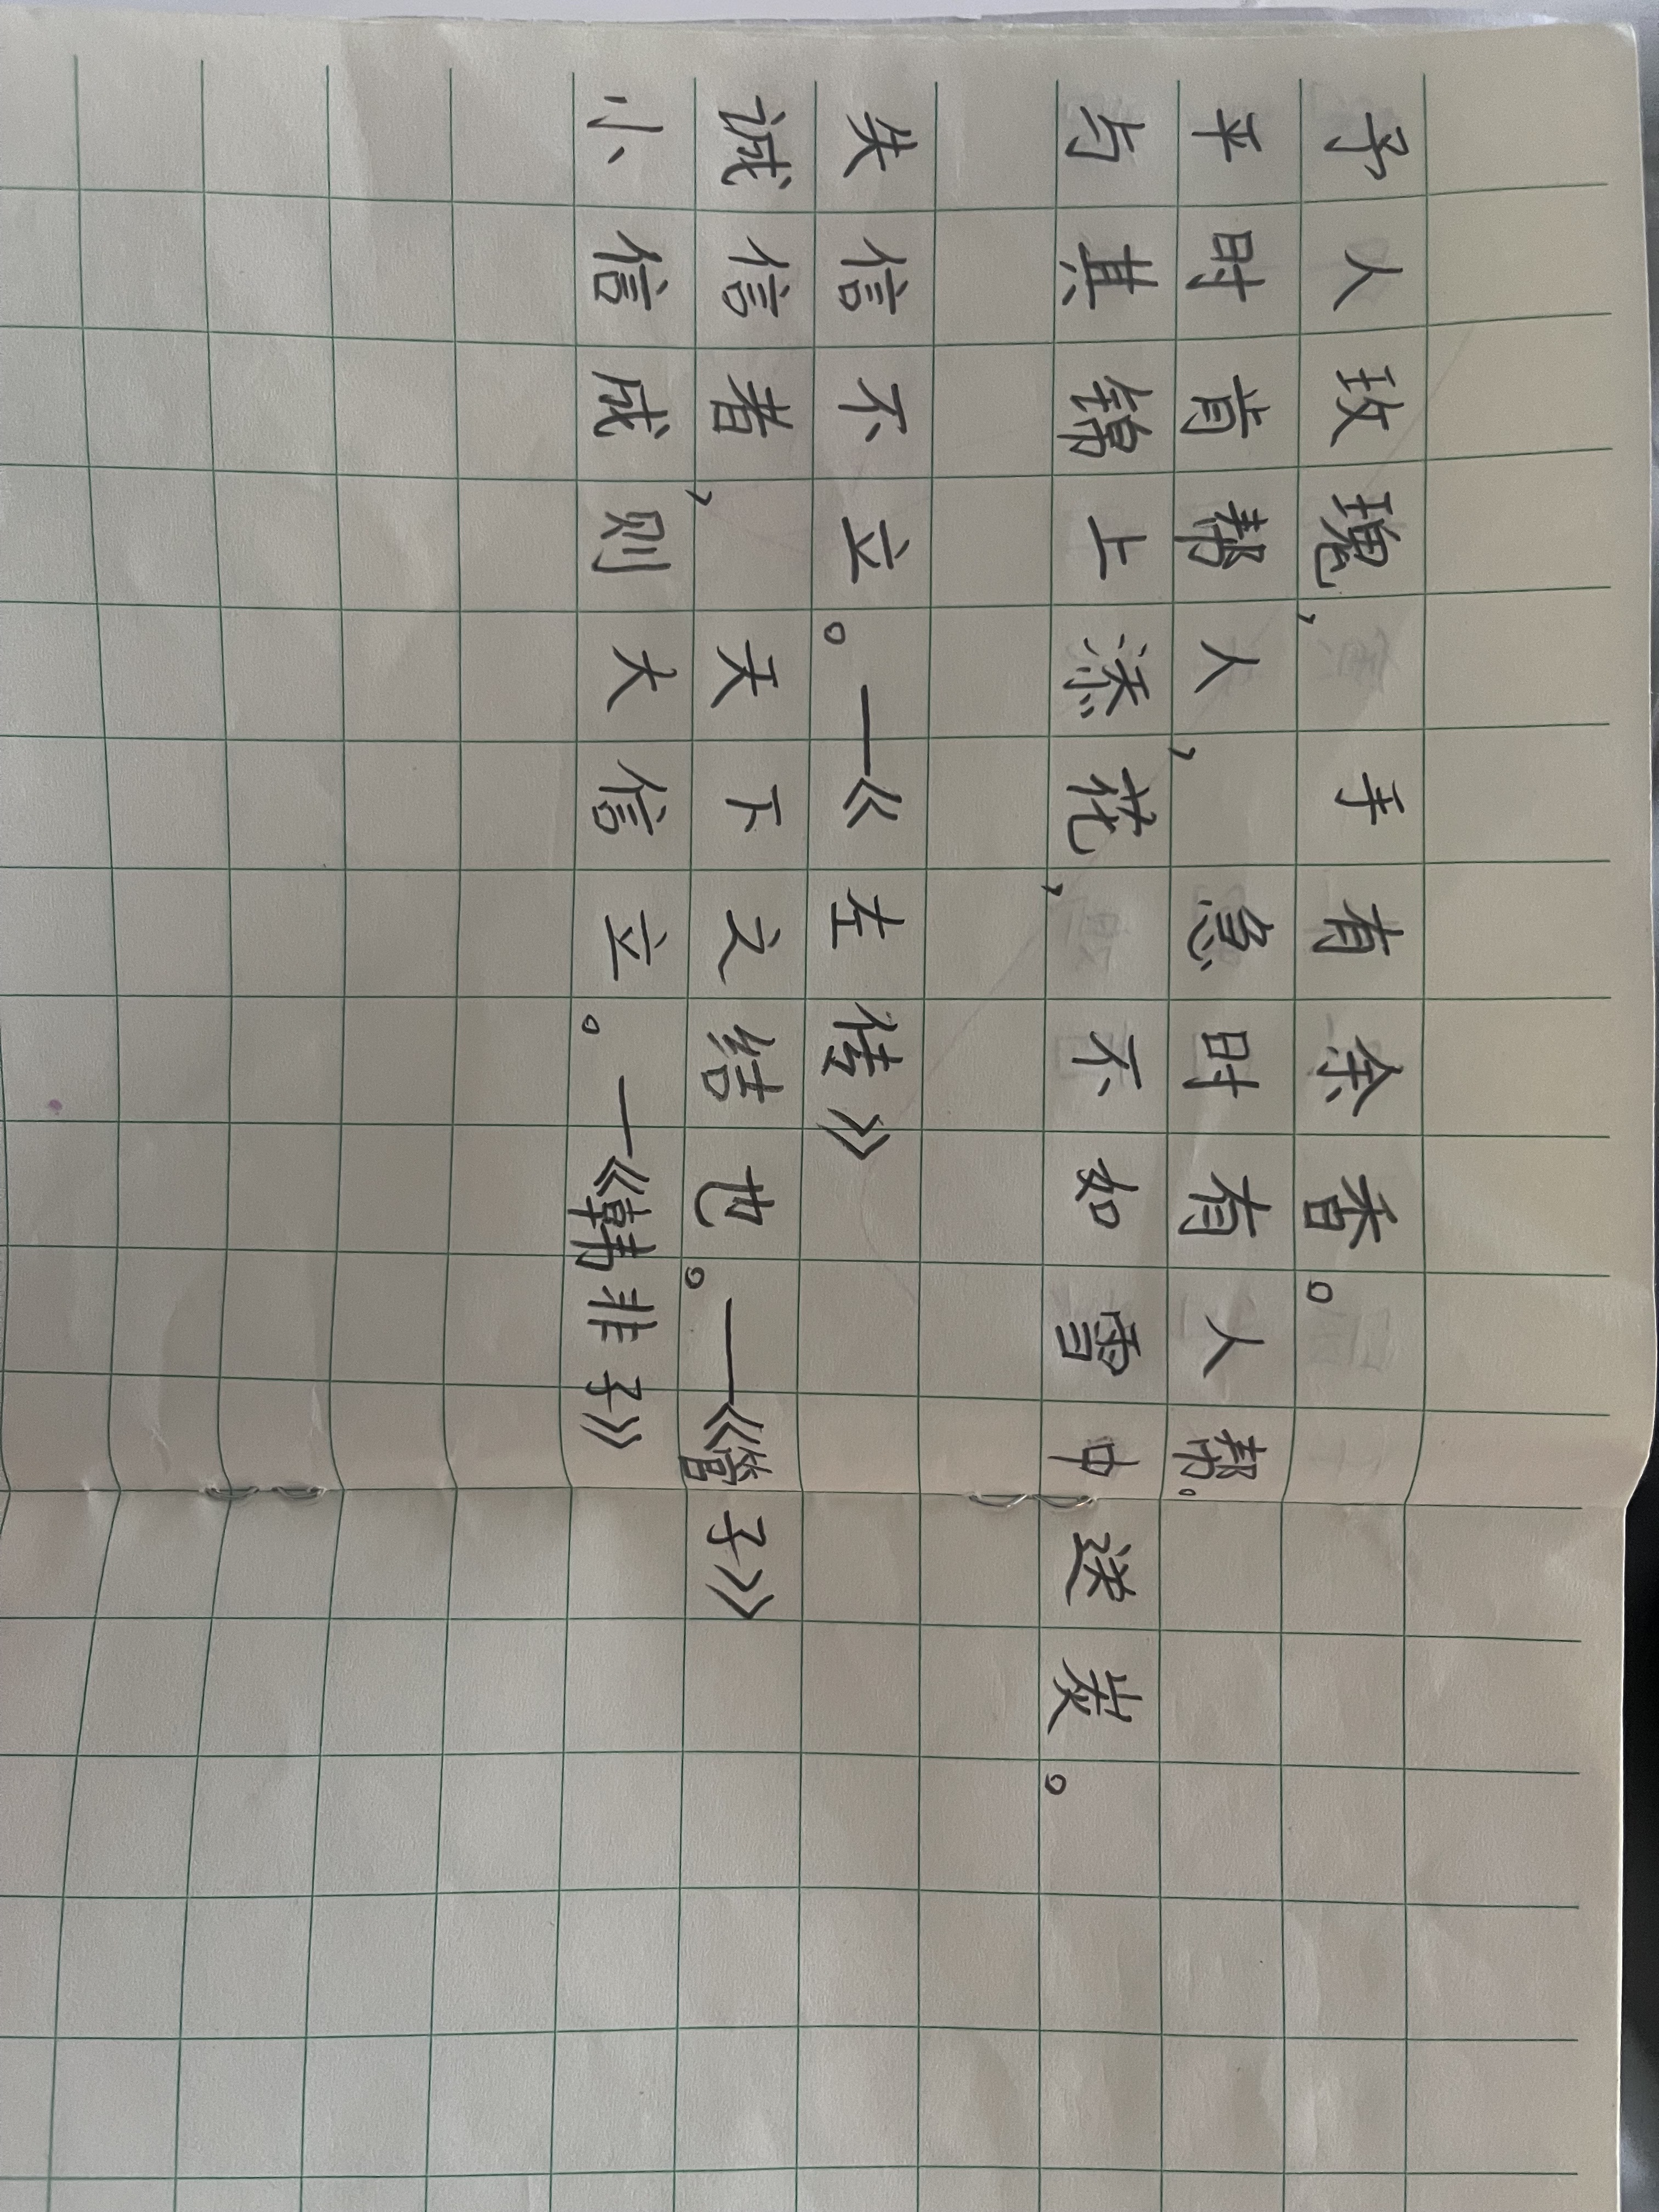 予人玫瑰,手有余香。
平时肯帮人,急时有人帮。
与其锦上添花,不如雪中送炭。
失信不立。——《左传》
诚信者,天下之结也。——《管子》
小信成则大信立。——《韩非子》